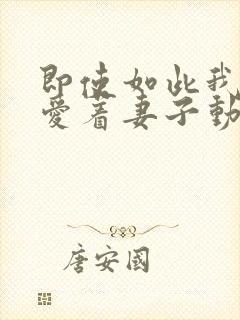 即使如此我
爱着妻子動
唐安國